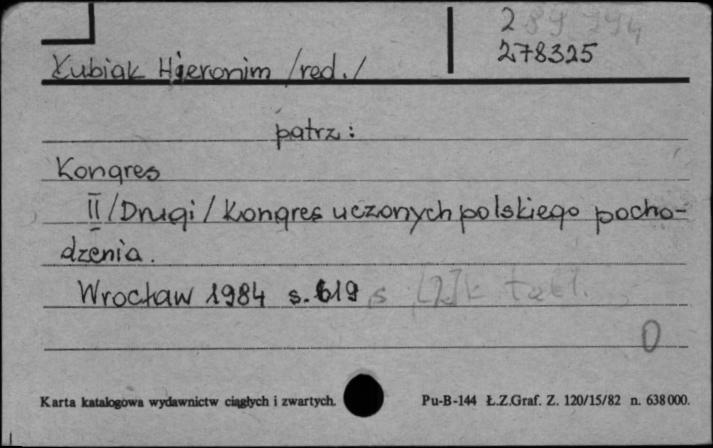 289 994
278325
Kubiak Hieronim /red./
patrz:
Kongres
II /Drugi/ Kongres uczonych polskiego pocho-
dzenia.
Wrocław 1984 s. 619, s [2] k tabl.
0
Karta katalogowa wydawnictw ciągłych i zwartych.
Pu-B-144 Ł.Z.Graf. Z. 120/15/82 n. 638 000.